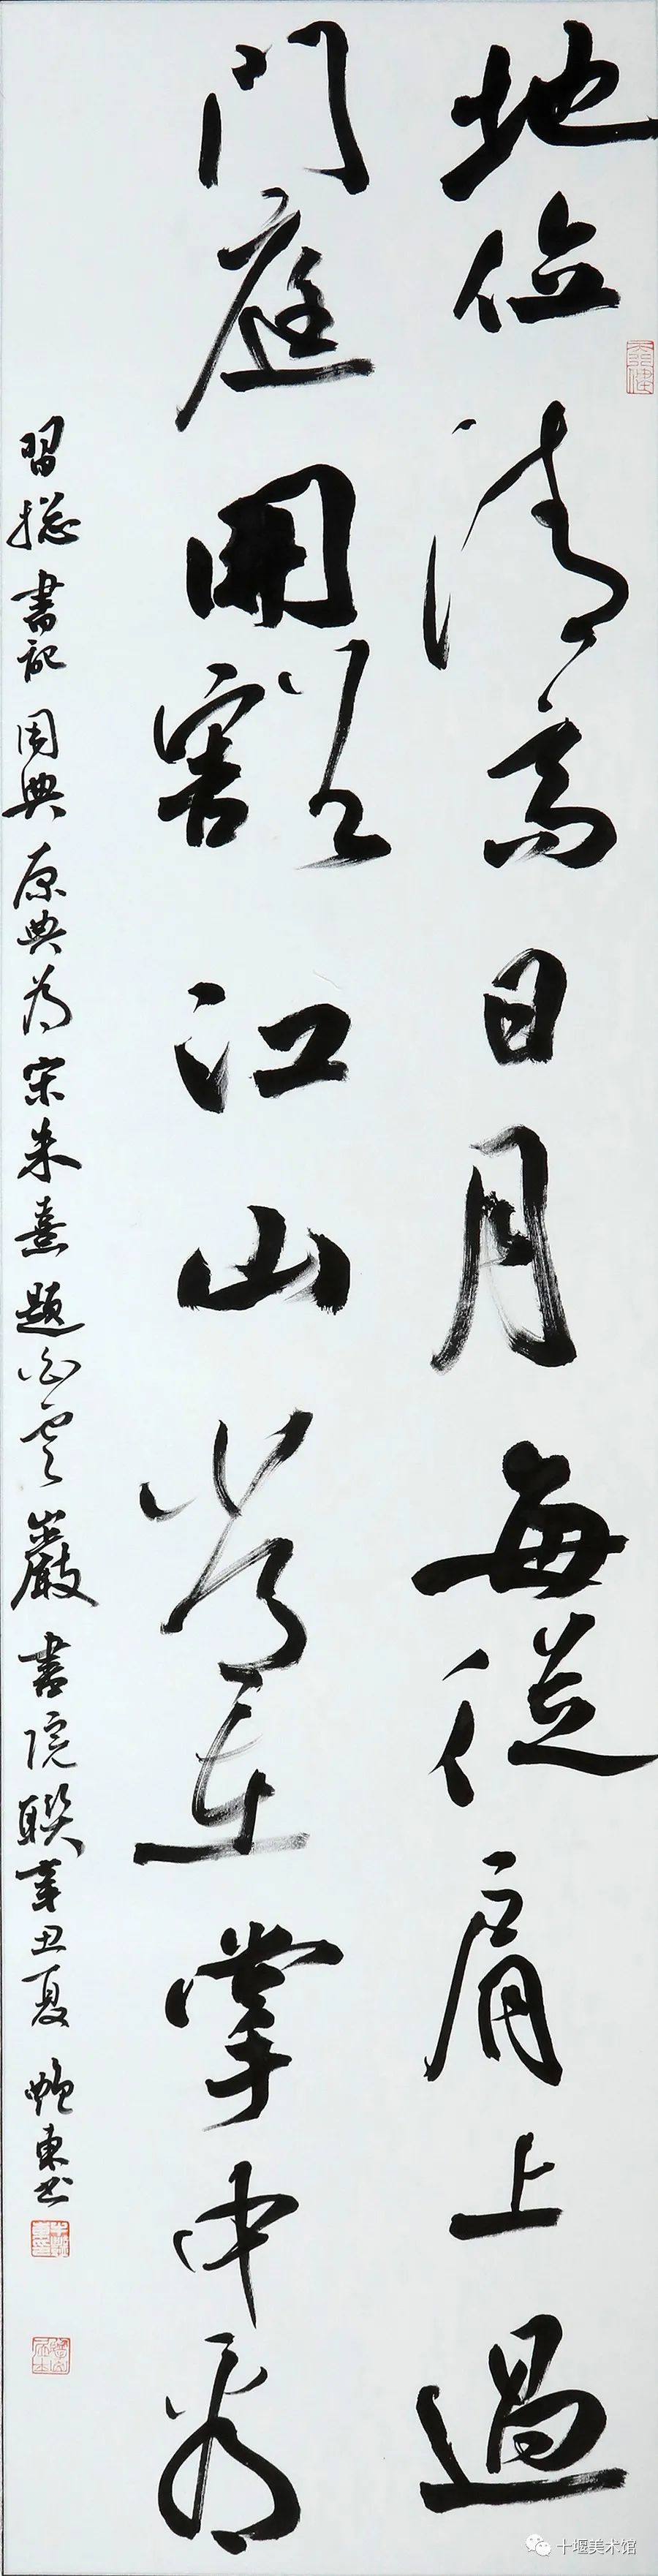 地位清高日月每從肩上過
門庭開豁江山常在掌中看
習総書記用典原典為宋朱熹題白雲巖書院聯辛丑夏鮑東书
十堰美术馆